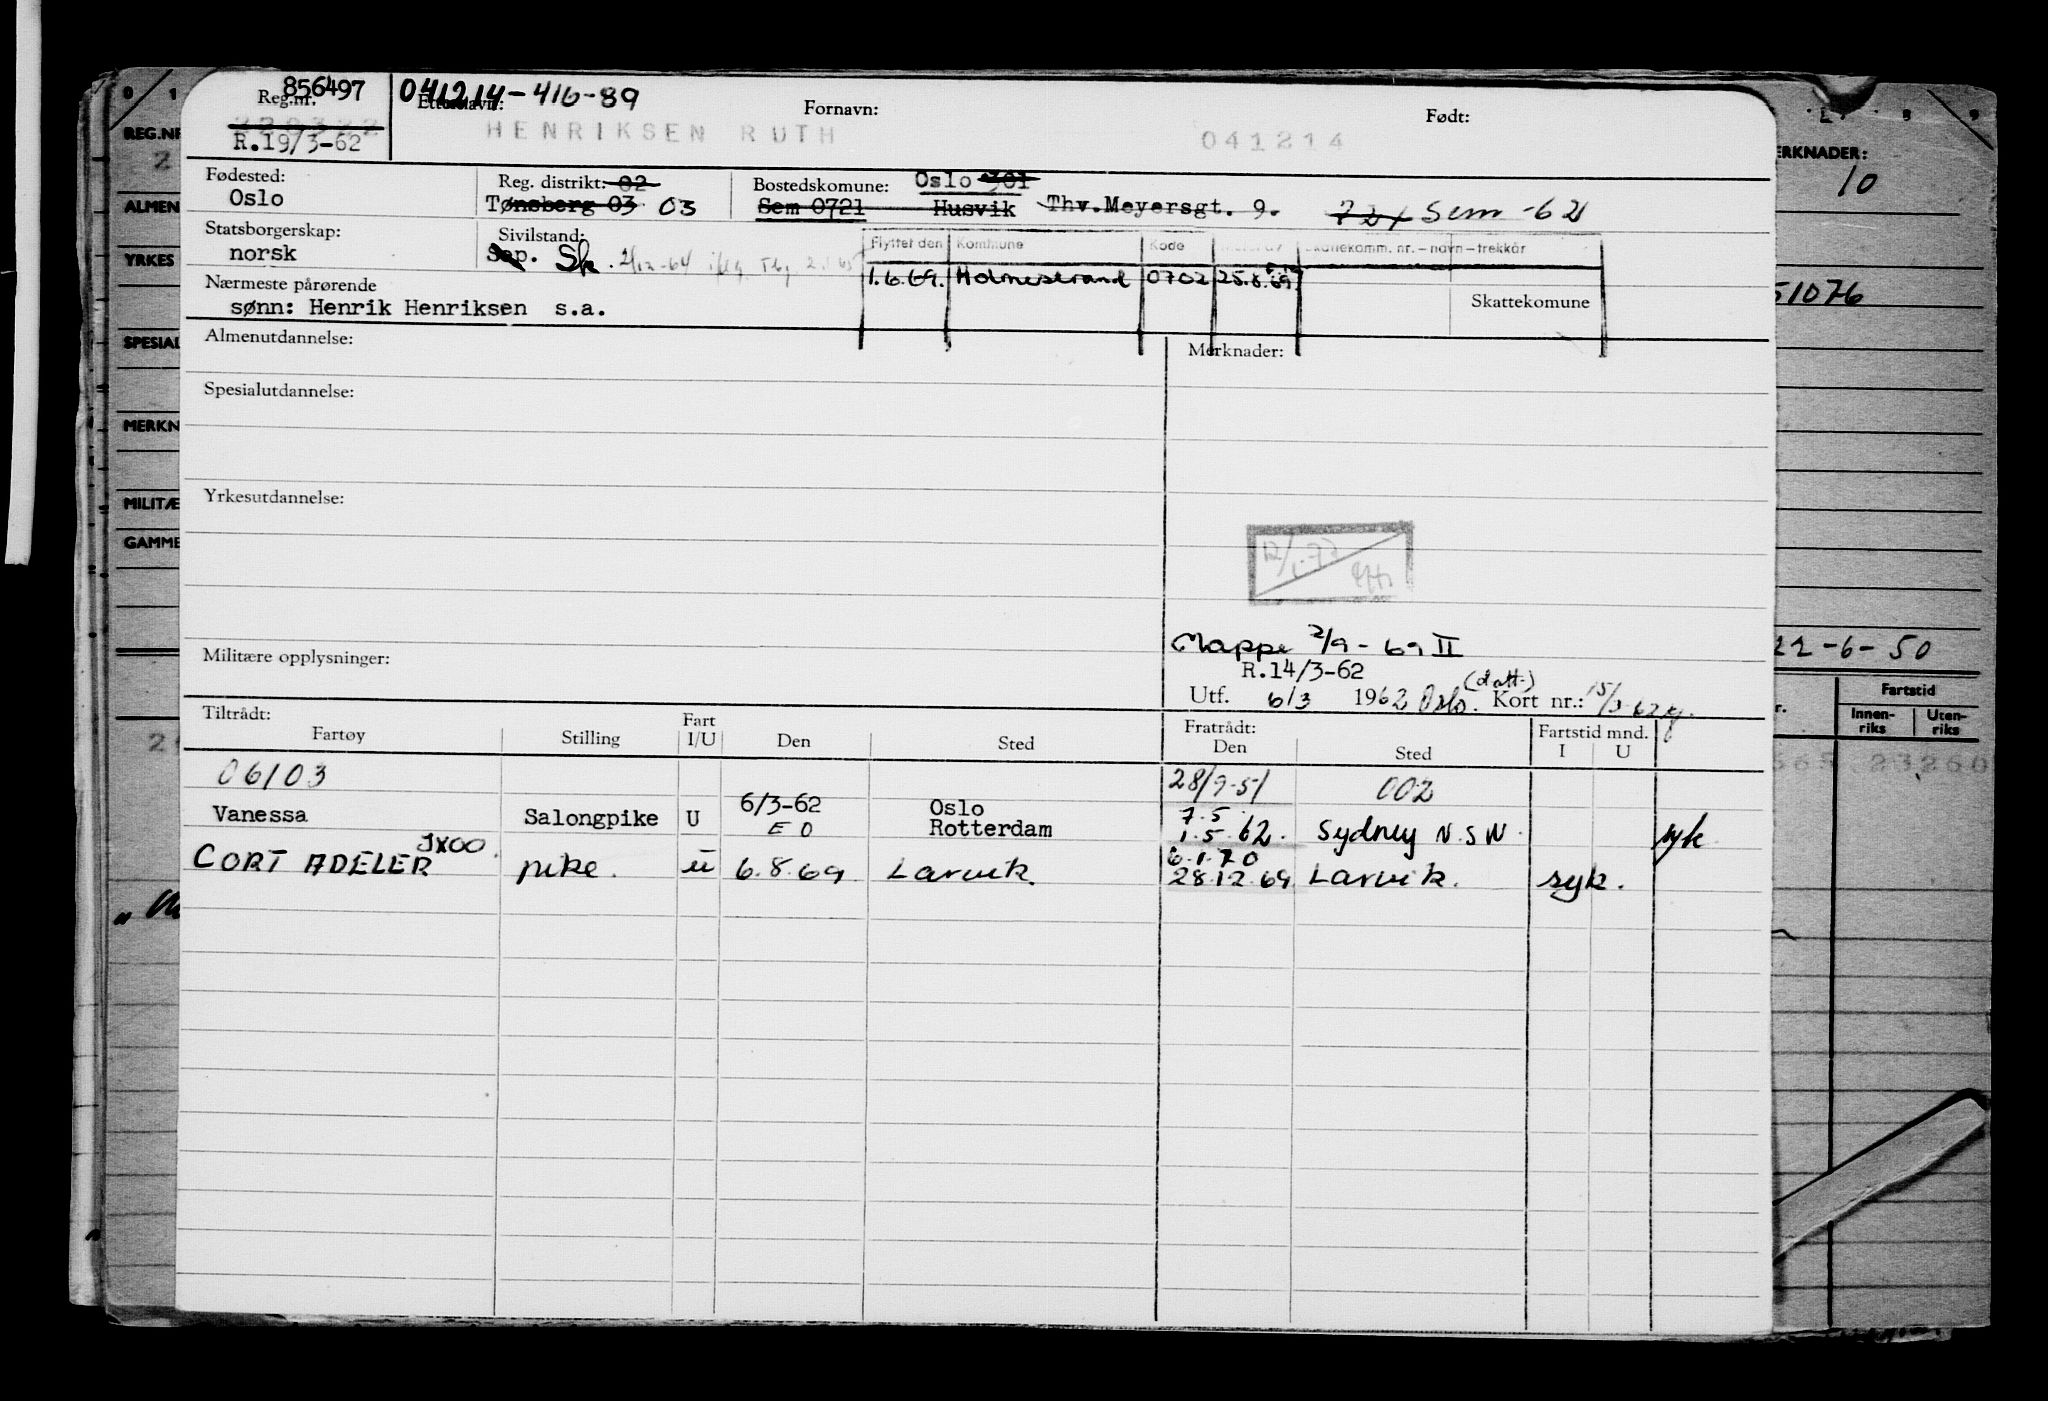 856497
Reg.nr.
R.19/3-62
041214-416-89
Etternavn:
Fornavn:
Født:
HENRIKSEN RUTH
041214
Fødested:
Oslo
Reg. distrikt: 02
Tønsberg 03 03
Bostedskomune: Oslo 301
Sem 0721 Husvik Thv.Meyersgt. 9. 721 Sem -62
Statsborgerskap:
norsk
Sivilstand:
Sep. Sk. 2/12-64
Flyttet den Kommune Kode Skattekomm. nr.–navn–trekkår
1.6.69. Holmestrand 0702 25.8.69
Nærmeste pårørende
sønn: Henrik Henriksen s.a.
Skattekomune
Almenutdannelse:
Merknader:
Spesialutdannelse:
Yrkesutdannelse:
12/1-77
Mappe 2/9-69 II
Militære opplysninger:
R.14/3-62
(datt.)
Utf. 6/3 1962 Oslo. Kort nr.: 15/3-62
Tiltrådt:
Fartøy
Stilling
Fart
I/U
Den
Sted
Fratrådt:
Den
Sted
Fartstid mnd.
I U
06103 28/9-51 002
Vanessa Salongpike U 6/3-62 Oslo 7.5
E O Rotterdam 1.5.62. Sydney N.S.W. syk
JXOO.
CORT ADELER pike. U 6.8.69 Larvik. 6.1.70
28.12.69 Larvik. syk.
REG.NR
2
ALMEN
YRKES
SPESIAL
MERKN
MILITÆ
GAMME
ERKNADER:
10
51076
22-6-50
Fartstid
Innen-
riks
Uten-
riks
23260